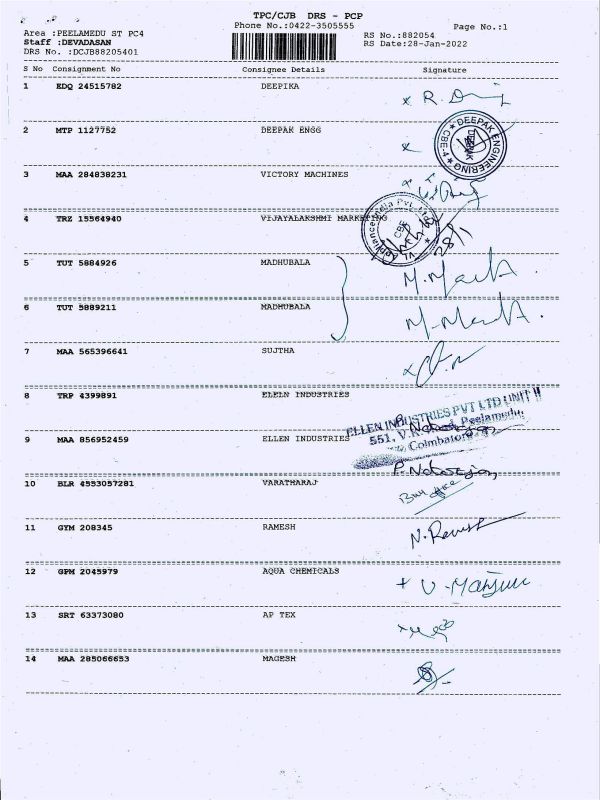 TPC/CJB DRS - PCP
Phone No.:0422-3505555
Page No.:1
Area :PEELAMEDU ST PC4
RS No.:882054
Staff :DEVADASAN
RS Date:28-Jan-2022
DRS No. :DCJB88205401
S No Consignment No Consignee Details Signature
1 EDQ 24515782 DEEPIKA
x R.
2 MTP 1127752 DEEPAK ENGG
x
DEEPAK ENGINEERING ★ CBE-4 ★
DEEPAK
3 MAA 284838231 VICTORY MACHINES
4 TRZ 15564940 VIJAYALAKSHMI MARKETING
Appliance Media Pvt. Ltd
CBE
28/1
5 TUT 5884926 MADHUBALA
6 TUT 5889211 MADHUBALA
7 MAA 565396641 SUJTHA
8 TRP 4399891 ELELN INDUSTRIES
ELLEN INDUSTRIES PVT LTD UNIT II
9 MAA 856952459 ELLEN INDUSTRIES
551, Peelamedu,
Coimbatore
P. Natarajan
10 BLR 4553057281 VARATHARAJ
11 GYM 208345 RAMESH
N. Ramesh
12 GPM 2045979 AQUA CHEMICALS
+ U. Manjula
13 SRT 63373080 AP TEX
14 MAA 285066653 MAGESH